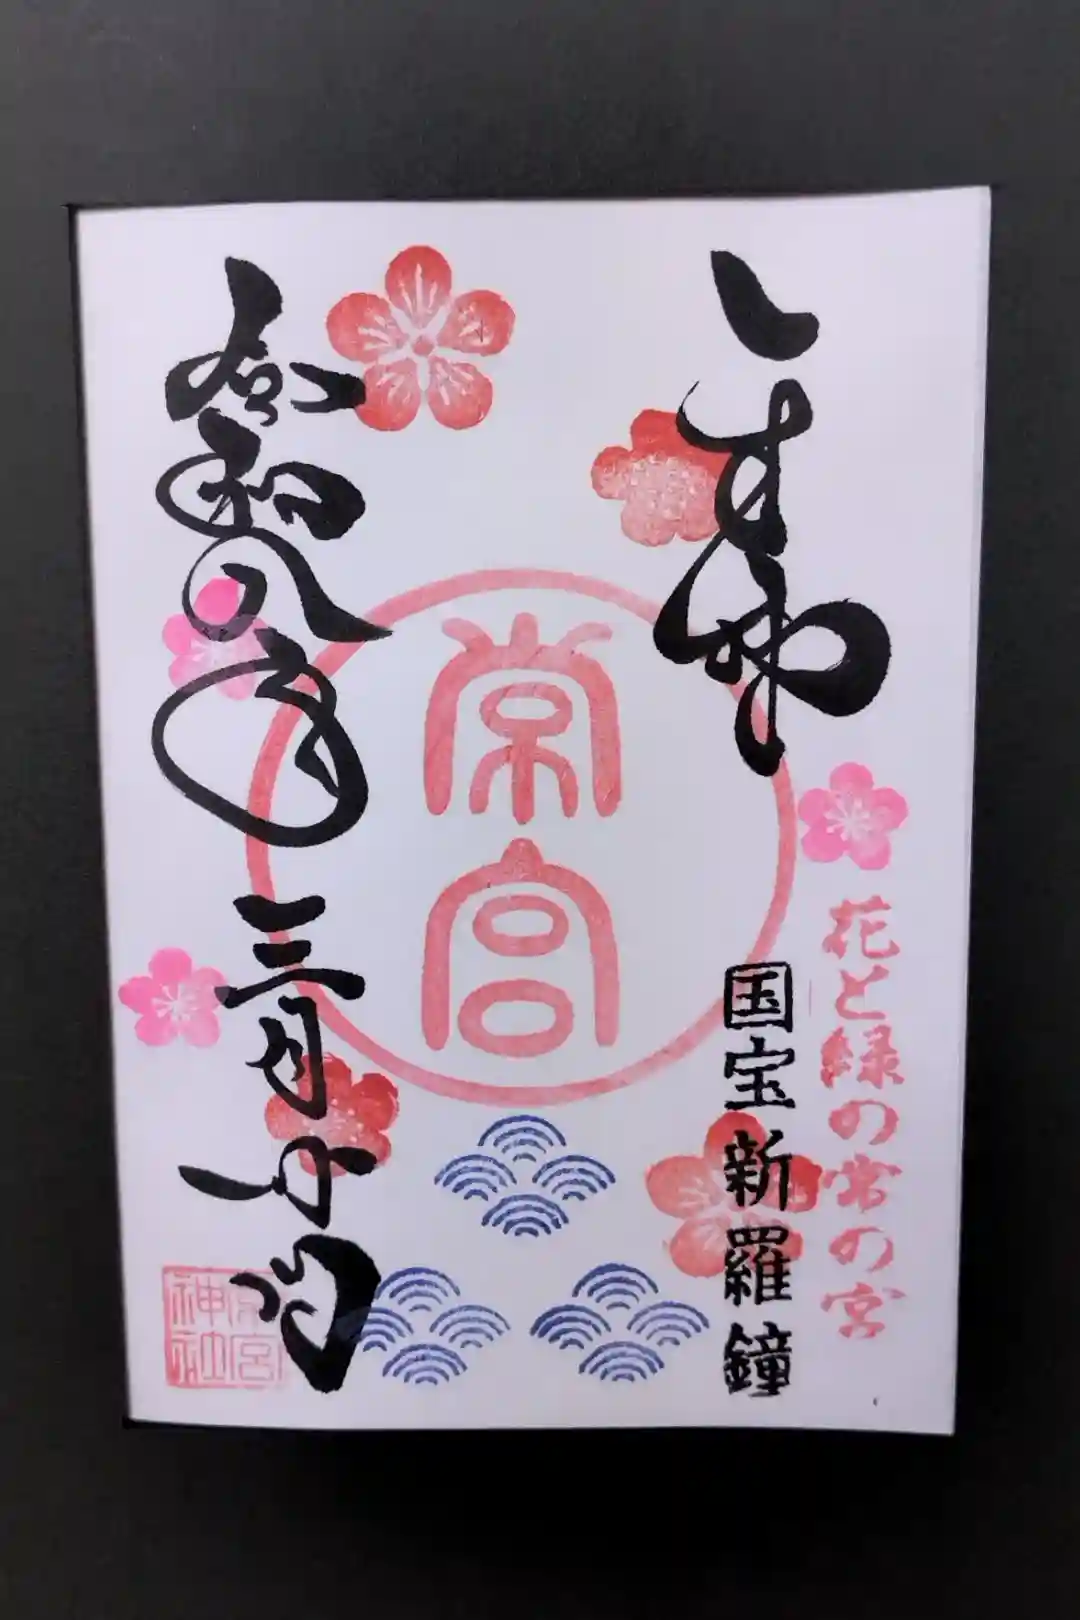 奉拝
花と緑の常の宮
国宝新羅鐘
常宮
令和八年三月
常宮神社